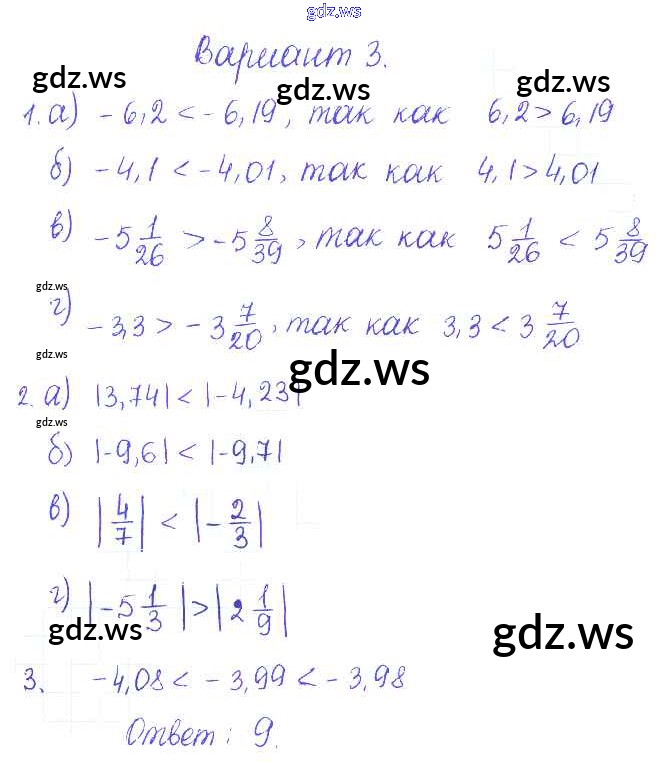 gdz.ws
Вариант 3.
gdz.ws gdz.ws gdz.ws
1. а) -6,2 < -6,19, так как 6,2 > 6,19
б) -4,1 < -4,01, так как 4,1 > 4,01
в) -5 1/26 > -5 8/39, так как 5 1/26 < 5 8/39
gdz.ws
г) -3,3 > -3 7/20, так как 3,3 < 3 7/20
gdz.ws gdz.ws
2. а) |3,74| < |-4,23|
gdz.ws
б) |-9,6| < |-9,7|
в) |4/7| < |-2/3|
г) |-5 1/3| > |2 1/9|
gdz.ws gdz.ws
3. -4,08 < -3,99 < -3,98
Ответ: 9.